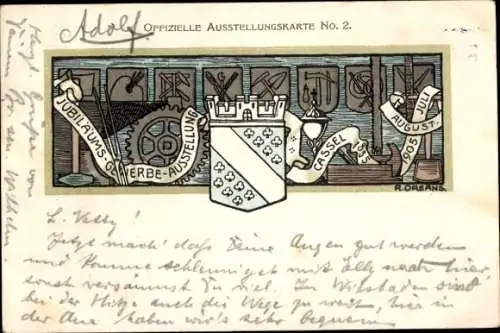 Adolf.
OFFIZIELLE AUSSTELLUNGSKARTE NO. 2.
JUBILÄUMS-GEWERBE-AUSSTELLUNG
CASSEL 1905
JULI
AUGUST.
1905
R. ORBANS.
L. Vetty!
Jetzt mach' daß Deine Augen gut werden
und komme schleunigst mit Elly nach hier,
sonst versäumst Du viel. In Wiesbaden sind
bei der Hitze auch die Wege zu weit, hier in
der Aue haben wir's sehr bequem.
Herzl. Grüße von
Wilhelm